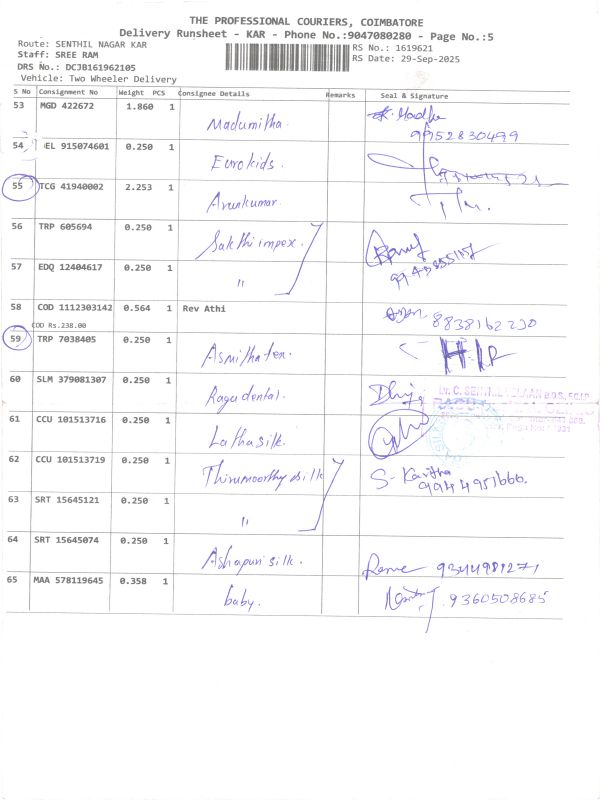 THE PROFESSIONAL COURIERS, COIMBATORE
Delivery Runsheet - KAR - Phone No.:9047080280 - Page No.:5
Route: SENTHIL NAGAR KAR
RS No.: 1619621
Staff: SREE RAM
RS Date: 29-Sep-2025
DRS No.: DCJB161962105
Vehicle: Two Wheeler Delivery
S No Consignment No Weight PCS Consignee Details Remarks Seal & Signature
53 MGD 422672 1.860 1 Madumitha. 9952830499
54 EL 915074601 0.250 1 Eurokids.
55 TCG 41940002 2.253 1 Arunkumar.
56 TRP 605694 0.250 1 Sakthi impex.
57 EDQ 12404617 0.250 1 "
58 COD 1112303142 0.564 1 Rev Athi 8838162230
COD Rs.238.00
59 TRP 7038405 0.250 1 Asmithatex.
60 SLM 379081307 0.250 1 Ragu dental.
61 CCU 101513716 0.250 1 Latha silk.
62 CCU 101513719 0.250 1 Thirumoorthy silk S. Kavitha
9944951666.
63 SRT 15645121 0.250 1 "
64 SRT 15645074 0.250 1 Ashapuri silk.
65 MAA 578119645 0.358 1 baby. 9360508685